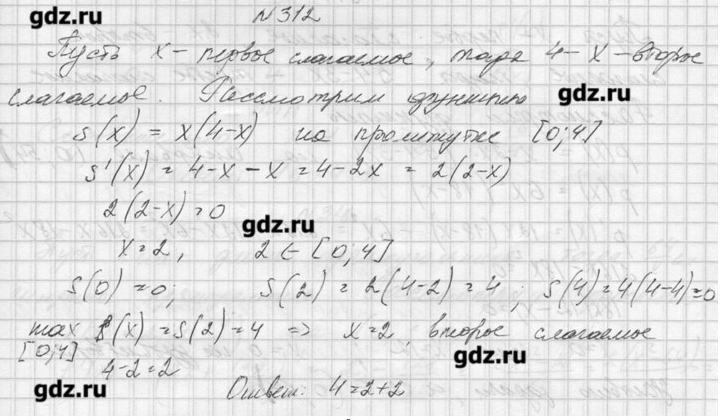 №312
gdz.ru
Пусть x – первое слагаемое, тогда 4-x – второе
слагаемое. Рассмотрим функцию
gdz.ru
s(x) = x(4-x) на промежутке [0;4]
s'(x) = 4-x-x = 4-2x = 2(2-x)
2(2-x)=0
gdz.ru
x=2, 2 ∈ [0;4]
s(0)=0; s(2)=2(4-2)=4; s(4)=4(4-4)=0
max s(x)=s(2)=4 => x=2, второе слагаемое
[0;4]
gdz.ru
4-2=2
gdz.ru
Ответ: 4=2+2